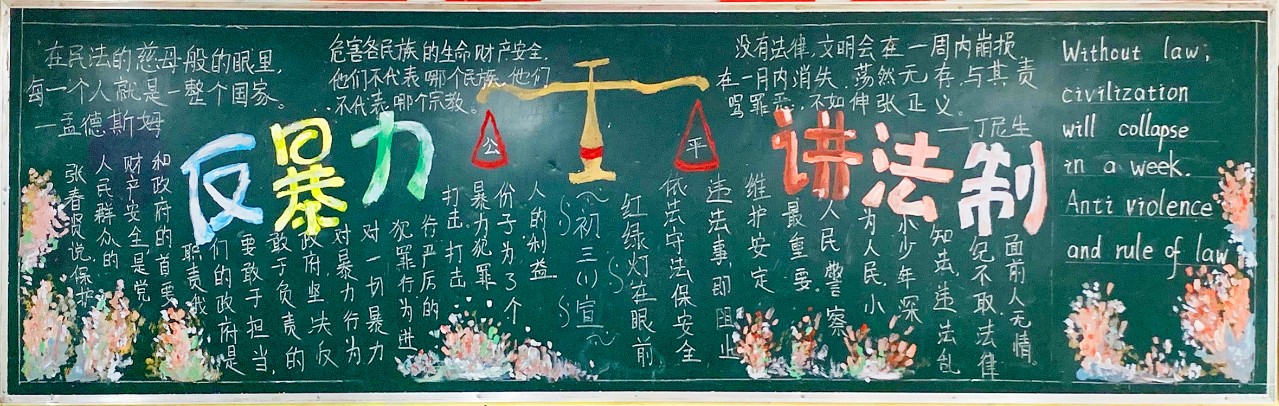 在民法的慈母般的眼里,
每一个人就是一整个国家。
—孟德斯姆
危害各民族的生命财产安全,
他们不代表哪个民族,他们
不代表哪个宗教。
没有法律,文明会在一周内崩损
在一月内消失,荡然无存,与其责
骂罪恶,不如伸张正义。
—丁尼生
反暴力
公
平
讲法制
张春贤说保护
人民群众的
财产安全是党
和政府的首要
职责我
们的政府是
要敢于担当,
敢于负责的
政府,坚决反
对暴力行为
对一切暴力
犯罪行为进
行严厉的
打击,打击
暴力犯罪
份子为了个
人的利益
初三(1)宣
红绿灯在眼前
依法守法保安全
违法事即阻止
维护安定
最重要
人民警察
为人民,小
小少年深
知法,违法乱
纪不取,法律
面前人无情。
Without law,
civilization
will collapse
in a week.
Anti violence
and rule of law